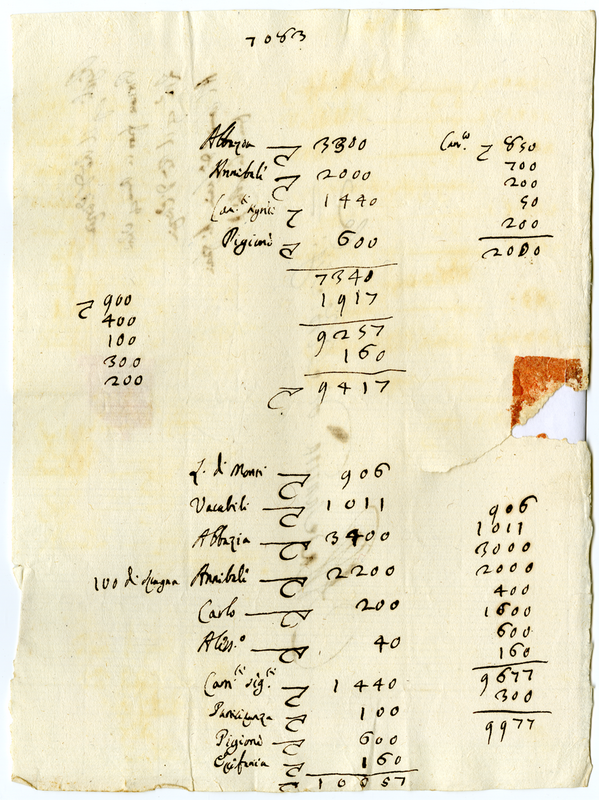 7083
Abbazia 3300
Annibali 2000
1440
Pigioni 600
7340
1917
9257
160
9417
Cam.ᵗⁱ 850
700
200
50
200
2000
900
400
100
300
200
L. di Monti 906
Vacabili 1011
Abbazia 3400
100 di Annibali 2200
Carlo 200
Aless.º 40
Cam.ᵗⁱ Sig.ʳⁱ 1440
100
Pigioni 600
Epifania 160
10057
906
1011
3000
2000
400
1600
600
160
9677
300
9977